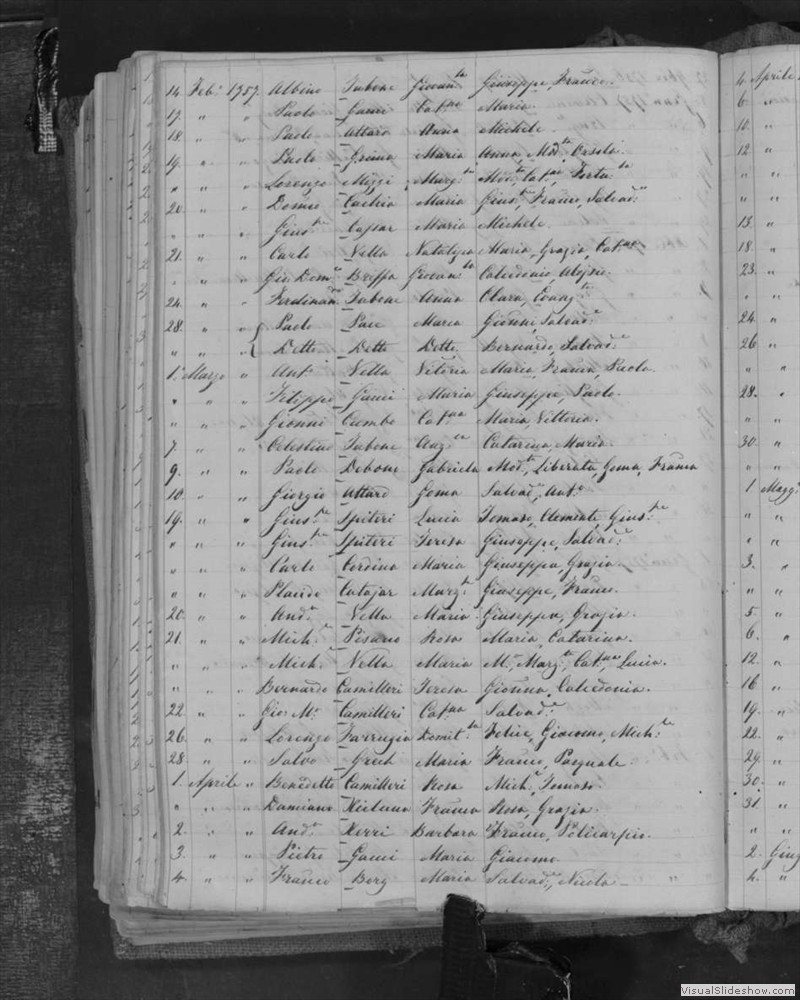 14 Feb. 1757. Albino Tabone Giovan^la Giuseppe, Franco.
17. " " Paolo Gauci Cat^na Maria.
18. " " Paolo Attard Anna Michele.
19. " " Paolo Grima Maria Anna, Mod^ta,
" " " Lorenzo Mizzi Marg^ta Mod^ta, Cat^na,
20. " " Maria Gius^e, Franco, Salvad^e
" " " Gius^e Caspar Maria Michele.
21. " " Carlo Vella Natalizia Maria, Grazia, Cat^na
" " " Gio Dom^o Briffa Giovan^la Calcedonio, Alessio.
24. " " Ferdinan^do Tabone Anna Clara,
28. " " Paolo Pace Maria Gionni, Salvad^e
" " " Detto Detto Detto Bernardo, Salvad^e
1. Marzo " Ant^o Vella Vitoria Maria, Franca, Paolo.
" " " Filippo Gauci Maria Giuseppe, Paolo.
" " " Gionni Ciumbo Cat^na Maria, Vittoria.
7. " " Celestino Tabone Catarina, Maria.
9. " " Paolo Debono Gabriela Mod^ta, Liberata, Gema, Franca
10. " " Giorgio Attard Gema Salvad^e, Ant^o
19. " " Gius^e Spiteri Lucia Tomaso, Clemente Gius^e
" " " Gius^e Spiteri Teresa Giuseppe, Salvad^e
" " " Carlo Cordina Maria Giuseppa, Grazia.
" " " Placido Catajar Marg^ta Giuseppe, Franco.
20. " " And^a Vella Maria Giuseppa, Grazia.
21. " " Mich^e Pisano Rosa Maria, Catarina.
" " " Mich^e Vella Maria M^a, Marg^ta, Cat^na, Lucia.
" " " Bernardo Camilleri Teresa Gionna, Calcedonia.
22. " " Gio M^a Camilleri Cat^na Salvad^e
26. " " Lorenzo Farrugia Domit^la Felice, Giacomo, Mich^e
28. " " Salvo Grech Maria Franco, Pasquale.
1. Aprile " Benedetto Camilleri Rosa Mich^e, Tomaso.
" " " Damiano Xicluna Franca Rosa, Grazia.
2. " " And^a Xerri Barbara Franco, Policarpio.
3. " " Pietro Gauci Maria Giacomo
4. " " Franco Borg Maria Salvad^e, Nicola
4. Aprile
6. "
10. "
12. "
" "
" "
13. "
18. "
23. "
" "
24 "
26 "
" "
28. "
" "
30. "
" "
1 Magg
" "
" "
3. "
" "
5 "
6. "
12. "
16. "
19. "
22. "
29. "
30. "
31. "
" "
2. Giug
4. "
VisualSlideshow.com